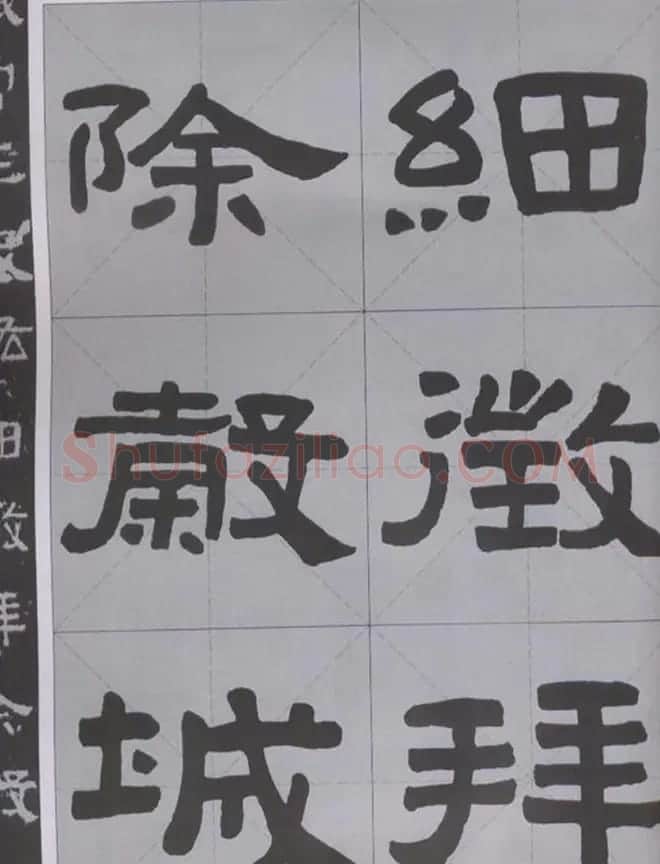 細徵拜
除穀城
Shufaziliao.COM